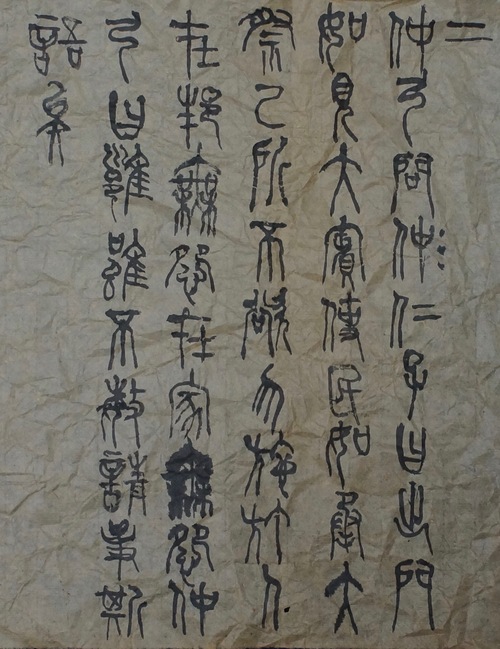 二
仲弓問仲仁子曰出門
如見大賓使民如承大
祭己所不欲勿施於人
在邦無怨在家無怨仲
弓曰雍雖不敏請事斯
語矣